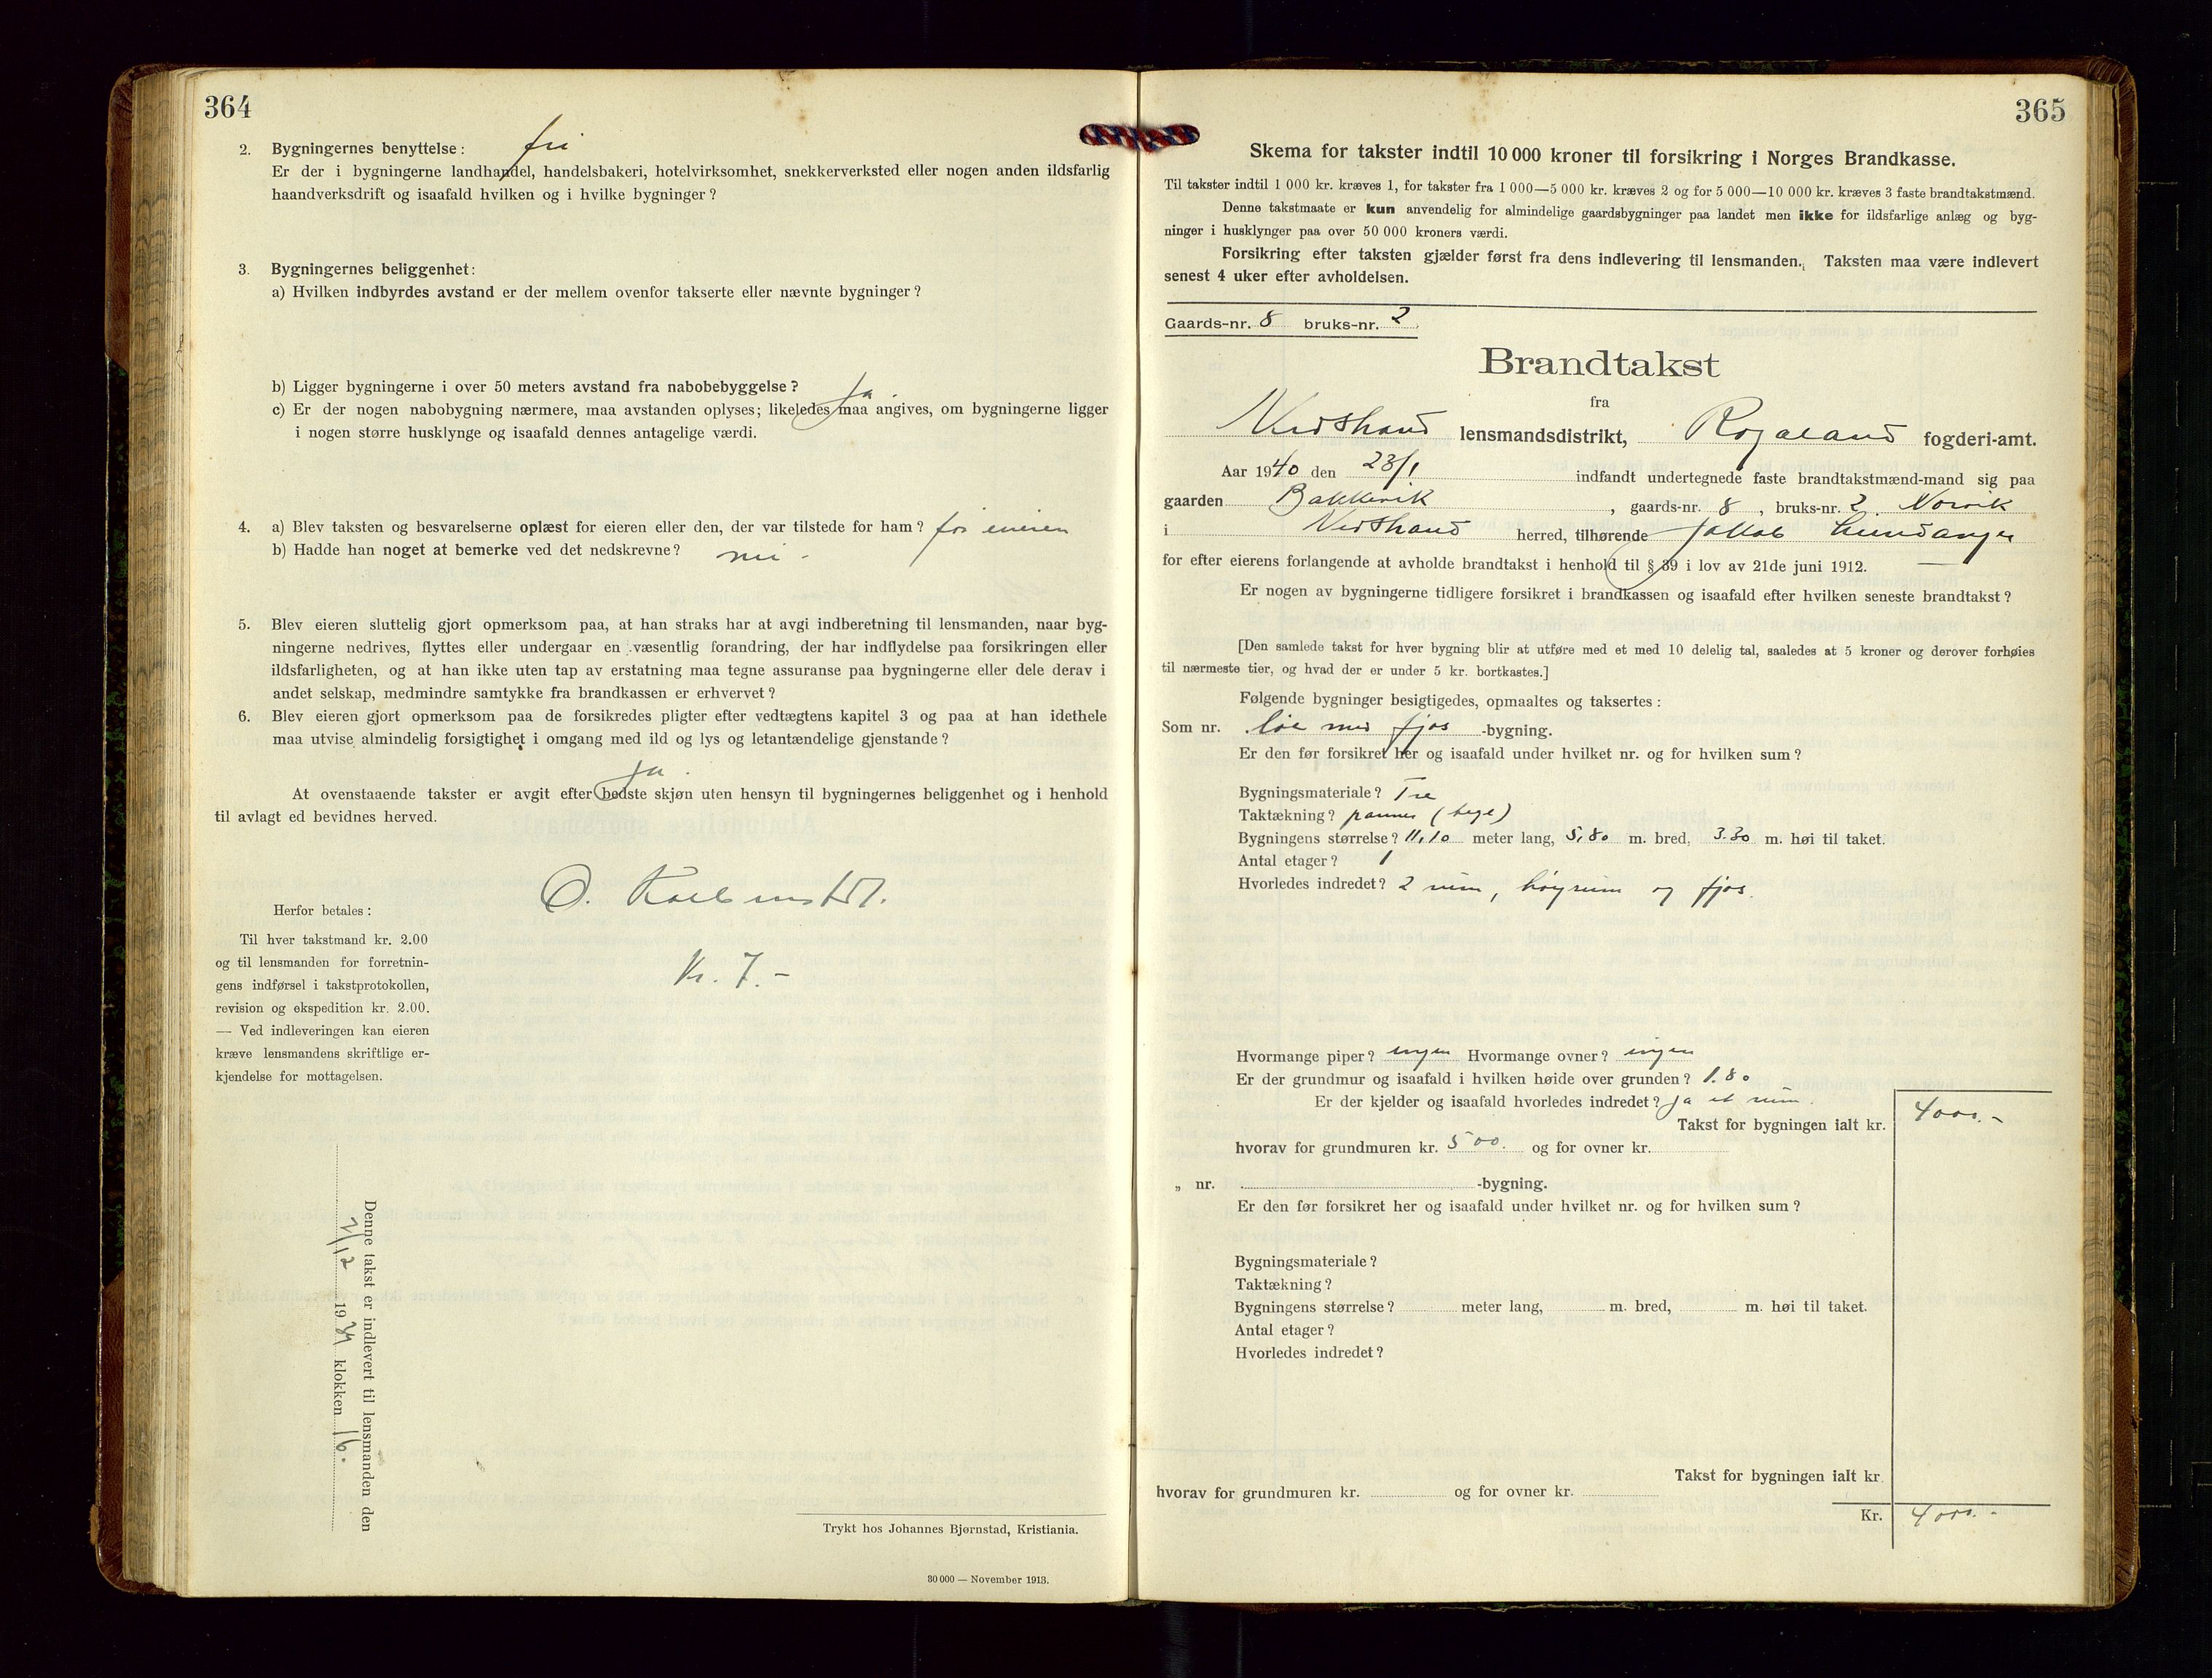 364
2. Bygningernes benyttelse: fri
Er der i bygningerne landhandel, handelsbakeri, hotelvirksomhet, snekkerverksted eller nogen anden ildsfarlig
haandverksdrift og isaafald hvilken og i hvilke bygninger?
3. Bygningernes beliggenhet:
a) Hvilken indbyrdes avstand er der mellem ovenfor takserte eller nævnte bygninger?
b) Ligger bygningerne i over 50 meters avstand fra nabobebyggelse? Ja.
c) Er der nogen nabobygning nærmere, maa avstanden oplyses; likeledes maa angives, om bygningerne ligger
i nogen større husklynge og isaafald dennes antagelige værdi.
4. a) Blev taksten og besvarelserne oplæst for eieren eller den, der var tilstede for ham? for eieren
b) Hadde han noget at bemerke ved det nedskrevne? nei -
5. Blev eieren sluttelig gjort opmerksom paa, at han straks har at avgi indberetning til lensmanden, naar byg-
ningerne nedrives, flyttes eller undergaar en væsentlig forandring, der har indflydelse paa forsikringen eller
ildsfarligheten, og at han ikke uten tap av erstatning maa tegne assuranse paa bygningerne eller dele derav i
andet selskap, medmindre samtykke fra brandkassen er erhvervet?
6. Blev eieren gjort opmerksom paa de forsikredes pligter efter vedtægtens kapitel 3 og paa at han idethele
maa utvise almindelig forsigtighet i omgang med ild og lys og letantændelige gjenstande?
Ja.
At ovenstaaende takster er avgit efter bedste skjøn uten hensyn til bygningernes beliggenhet og i henhold
til avlagt ed bevidnes herved.
O.
Kr. 7.-
Herfor betales:
Til hver takstmand kr. 2.00
og til lensmanden for forretnin-
gens indførsel i takstprotokollen,
revision og ekspedition kr. 2.00.
— Ved indleveringen kan eieren
kræve lensmandens skriftlige er-
kjendelse for mottagelsen.
Denne takst er indlevert til lensmanden den
2/12 1939 klokken 16.
Trykt hos Johannes Bjørnstad, Kristiania.
30 000 — November 1913.
365
Skema for takster indtil 10 000 kroner til forsikring i Norges Brandkasse.
Til takster indtil 1 000 kr. kræves 1, for takster fra 1 000—5 000 kr. kræves 2 og for 5 000—10 000 kr. kræves 3 faste brandtakstmænd.
Denne takstmaate er kun anvendelig for almindelige gaardsbygninger paa landet men ikke for ildsfarlige anlæg og byg-
ninger i husklynger paa over 50 000 kroners værdi.
Forsikring efter taksten gjælder først fra dens indlevering til lensmanden. Taksten maa være indlevert
senest 4 uker efter avholdelsen.
Gaards-nr. 8 bruks-nr. 2
Brandtakst
fra
Nedstrand lensmandsdistrikt, Rogaland fogderi-amt.
Aar 1940 den 23/1 indfandt undertegnede faste brandtakstmænd-mand sig paa
gaarden Bakkevik, gaards-nr. 8, bruks-nr. 2. Norvik
i Nedstrand herred, tilhørende Jakob Leundanger
for efter eierens forlangende at avholde brandtakst i henhold til § 39 i lov av 21de juni 1912.
Er nogen av bygningerne tidligere forsikret i brandkassen og isaafald efter hvilken seneste brandtakst?
[Den samlede takst for hver bygning blir at utføre med et med 10 delelig tal, saaledes at 5 kroner og derover forhøies
til nærmeste tier, og hvad der er under 5 kr. bortkastes.]
Følgende bygninger besigtigedes, opmaaltes og taksertes:
Som nr. løe med fjøs -bygning.
Er den før forsikret her og isaafald under hvilket nr. og for hvilken sum?
Bygningsmateriale? Tre
Taktækning? panner (tegl)
Bygningens størrelse? 11,10 meter lang, 5,80 m. bred, 3.30 m. høi til taket.
Antal etager? 1
Hvorledes indredet? 2 rum, høyrum og fjøs.
Hvormange piper? ingen Hvormange ovner? ingen
Er der grundmur og isaafald i hvilken høide over grunden? 1.80
Er der kjelder og isaafald hvorledes indredet? Ja et rum.
Takst for bygningen ialt kr. 4000.-
hvorav for grundmuren kr. 500. og for ovner kr.
„ nr. -bygning.
Er den før forsikret her og isaafald under hvilket nr. og for hvilken sum?
Bygningsmateriale?
Taktækning?
Bygningens størrelse? meter lang, m. bred, m. høi til taket.
Antal etager?
Hvorledes indredet?
Takst for bygningen ialt kr.
hvorav for grundmuren kr. og for ovner kr.
Kr. 4000.-